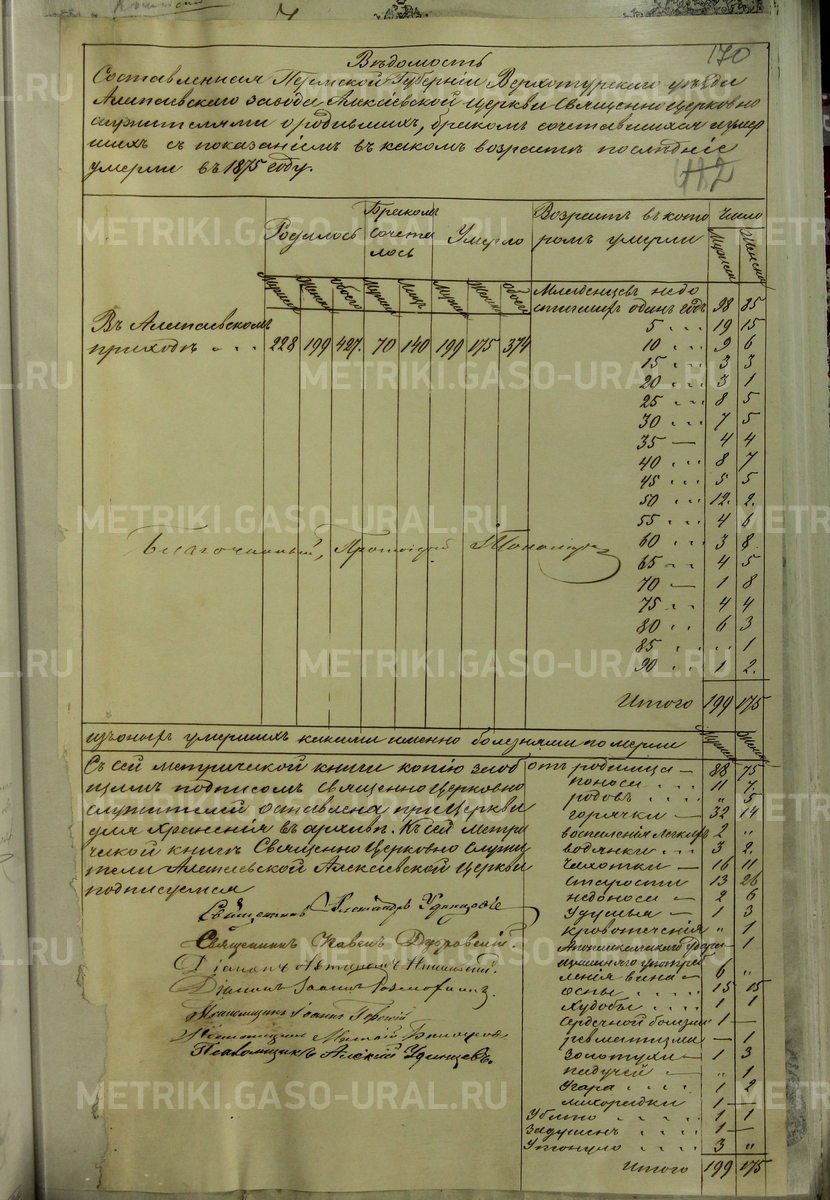 170
Вѣдомость
Составленная Пермской Губерніи Верхотурскаго уѣзда
Алапаевскаго завода Алексіевской Церкви Священно Церковно
служителями о родившихъ, бракомъ сочетавшихся и умер
шихъ съ показаніемъ въ какомъ возрастѣ послѣдніе
умерли въ 1875 году.
412
Родилось
Бракомъ сочета лось
Умерло
Возрастъ въ кото ромъ умерли
Число
Мужска Женска Обоего Мужска Лицъ Мужска Женска Обоего
Мужска Женска
Въ Алапаевскомъ
приходѣ . . . 228 199 427. 70 140 199 175 374
Младенцевъ недо
стигшихъ одинъ годъ 98 85
5 . . . 19 15
10 . . . 9 6
15 . . . 3 3
20 . . . 3 1
25 . . . 8 5
30 . . . 7 5
35 — 4 4
40 . . . 8 7
45 . . . 5 5
50 . . . 12. 2.
55 . . . 4 6
60 . . . 3 8.
65 . . . 4 5
70 — 1 8
75 . . . 4 4
80 . . . 6 3
85 . . . . . . 1
90 . . . 1 2.
Итого 199 175
Благочинный, Протоіерей
изъ онихъ умершихъ какими именно болезнями померли
Мужска Женска
Съ сей метрической книги копію за об
щимъ подписомъ Священно Церковно
служителей оставлена при Церкви
для храненія въ архивѣ. Къ сей метри
ческой книгѣ Священно Церковно Служи
тели Алапаевской Алексіевской Церкви
подписуемся
Священникъ Александръ Удинцовъ
Священникъ Павелъ
Діаконъ
Діаконъ Іоаннъ
Псаломщикъ Іоаннъ
Псаломщикъ
Псаломщикъ Алексій Удинцевъ.
отъ родимца — 88 75
поноса . . . 11 7.
родовъ . . . „ 5
горячки — 32 14
воспаленія легкихъ 2 „
водянки . . 3 2.
чахотки — 16 11
старости 13 26
недоноси — 2 6
Удушья — 1 3
кровотеченія „ 1
Апоплексическаго удара — 1
излишняго употреб
ленія вина — 6 „
оспы . . . . 15 15
худобы . . . 1 1
сердечной болезни 1 —
ревматизма — 1
Золотухи — 1 3
падучей — „ 1
Угара . . . . 1 2
лихорадки 1 —
Убито . . . . 1 1
Задушенъ . . 1 —
Утонуло . . . 3 „
Итого 199 175
METRIKI.GASO-URAL.RU